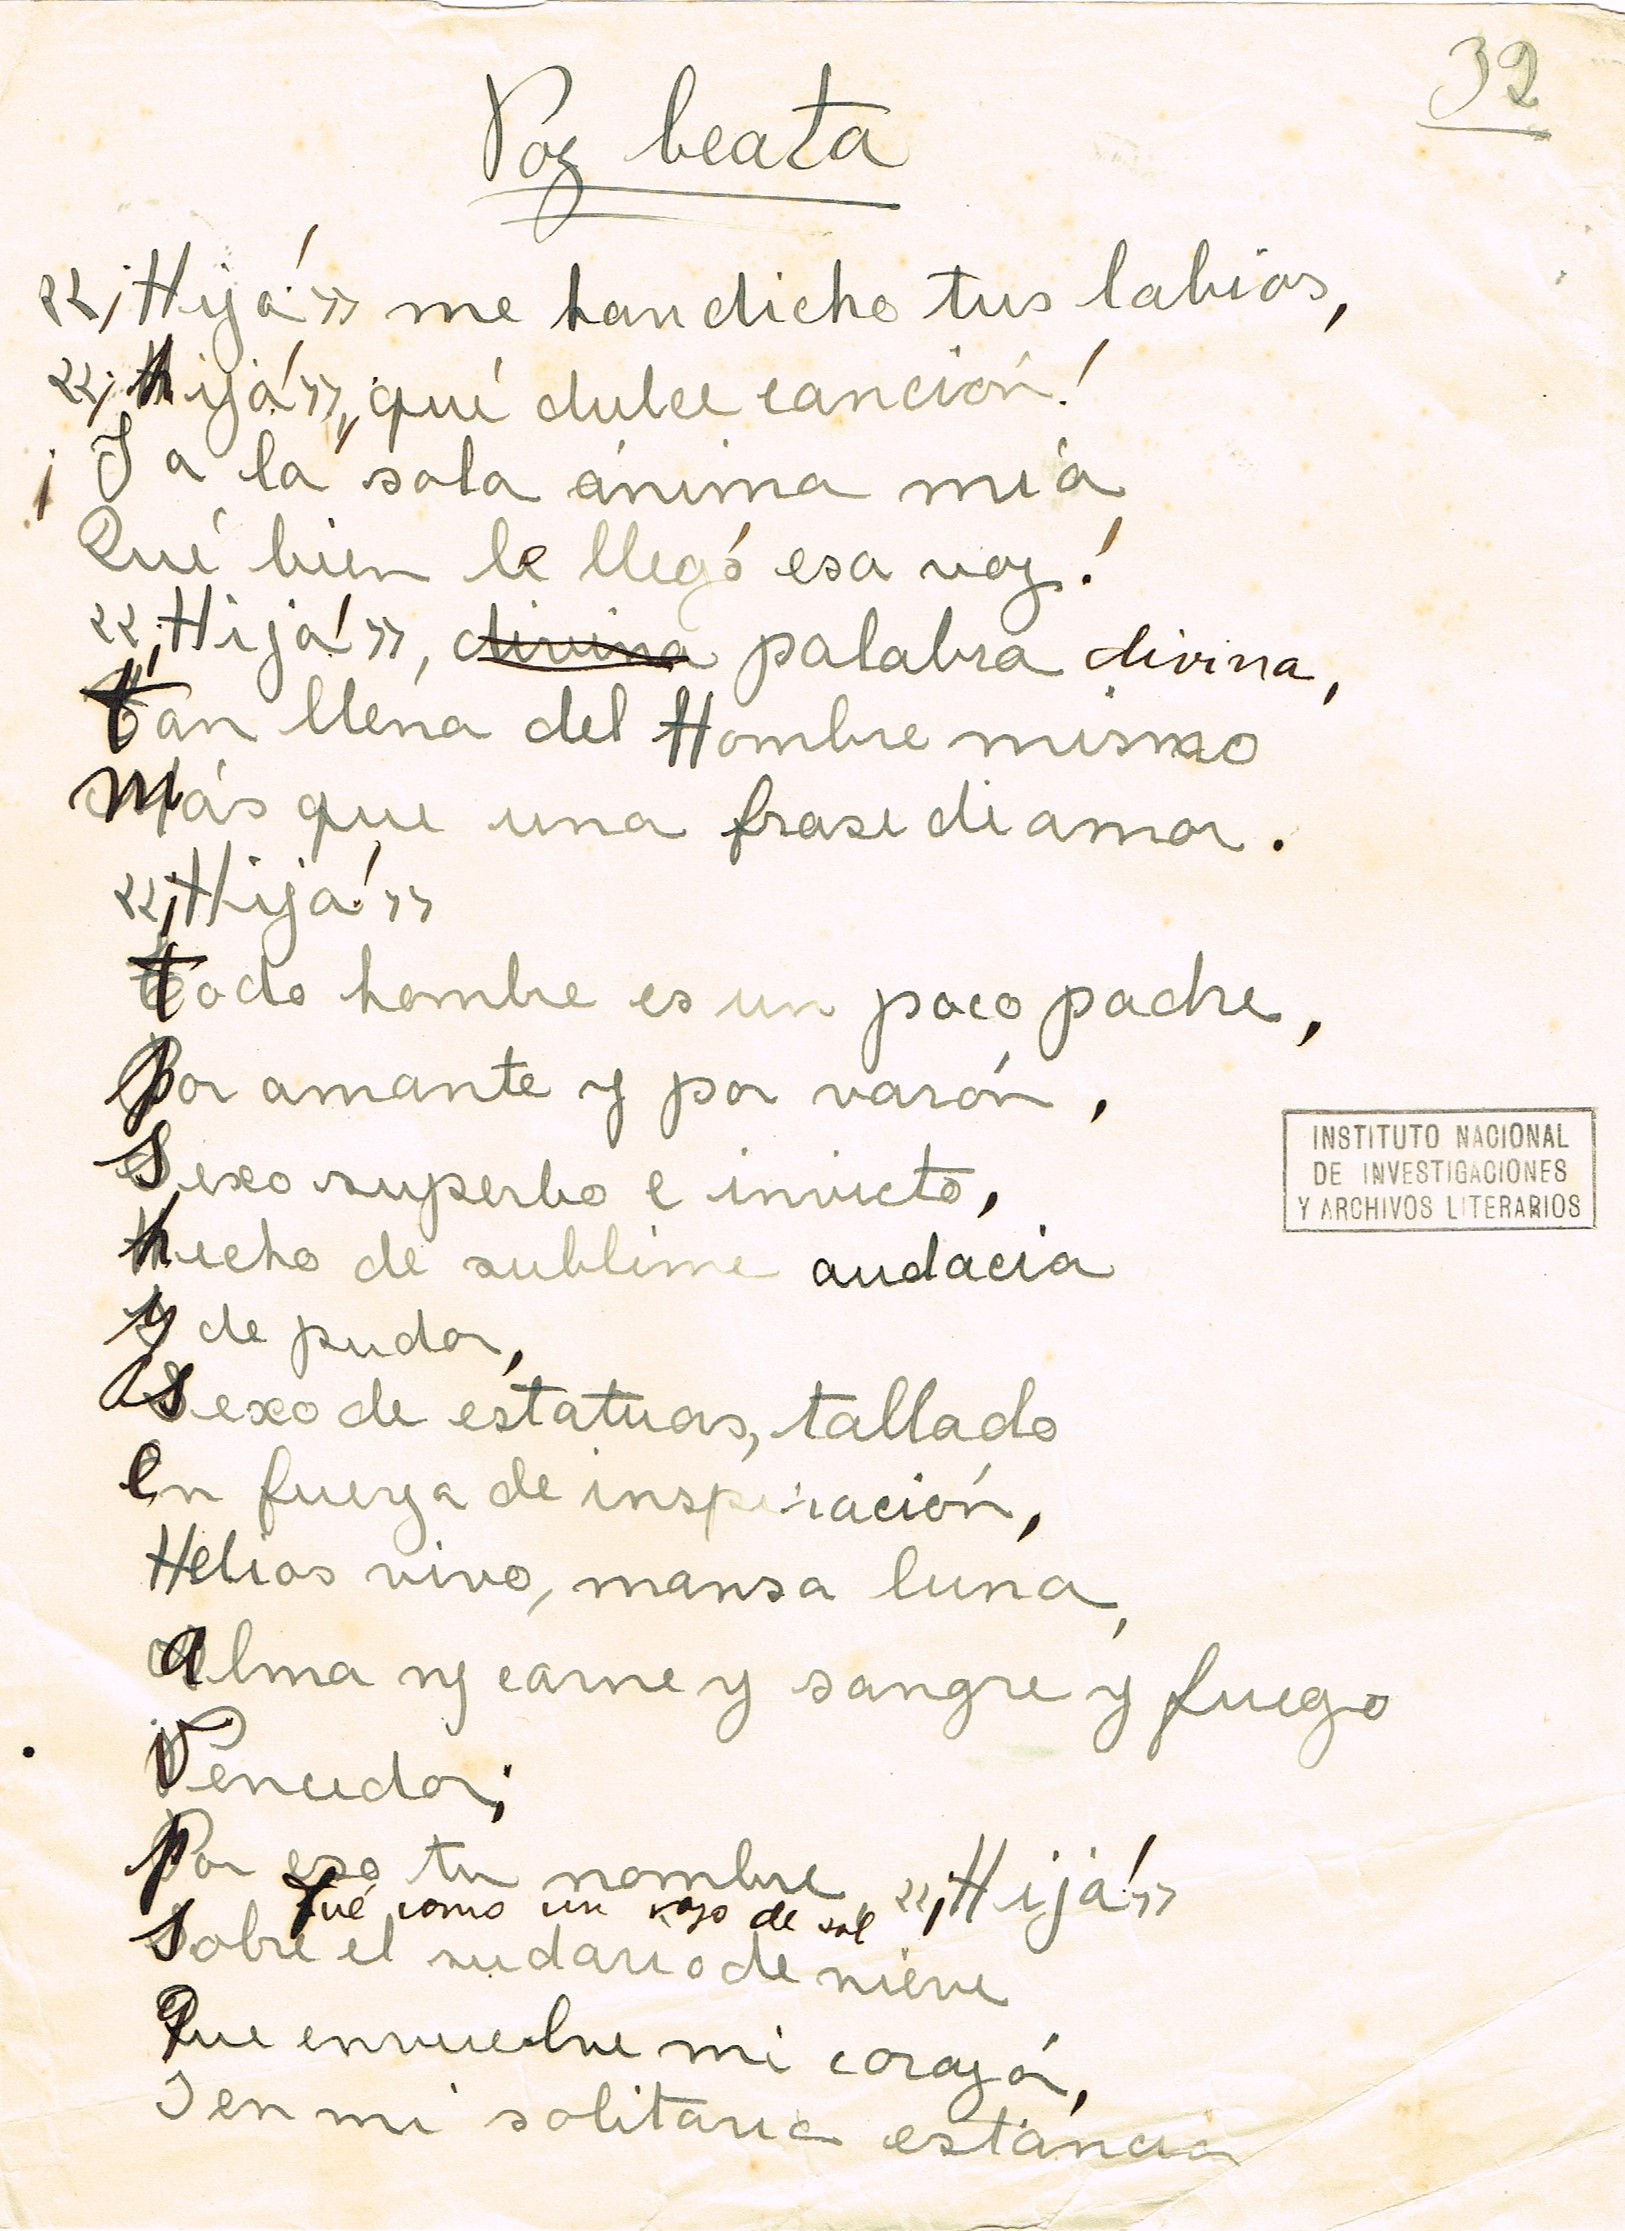 32
Voz beata
«¡Hija!» me han dicho tus labios,
«¡hija!», ¡qué dulce canción!
¡Y a la sola ánima mía
Qué bien le llegó esa voz!
«¡Hija!», divina palabra divina,
tan llena del Hombre mismo
Más que una frase de amor.
«¡Hija!»
todo hombre es un poco padre,
por amante y por varón,
Sexo superbo e invicto,
hecho de sublime audacia
y de pudor,
Sexo de estatuas, tallado
en fuerza de inspiración,
Helios vivo, mansa luna,
alma y carne y sangre y fuego
Vencedor;
por eso tu nombre «¡Hija!»
fué como un rayo de sol
Sobre el sudario de nieve
Que envuelve mi corazón,
Y en mi solitaria estancia
INSTITUTO NACIONAL
DE INVESTIGACIONES
Y ARCHIVOS LITERARIOS